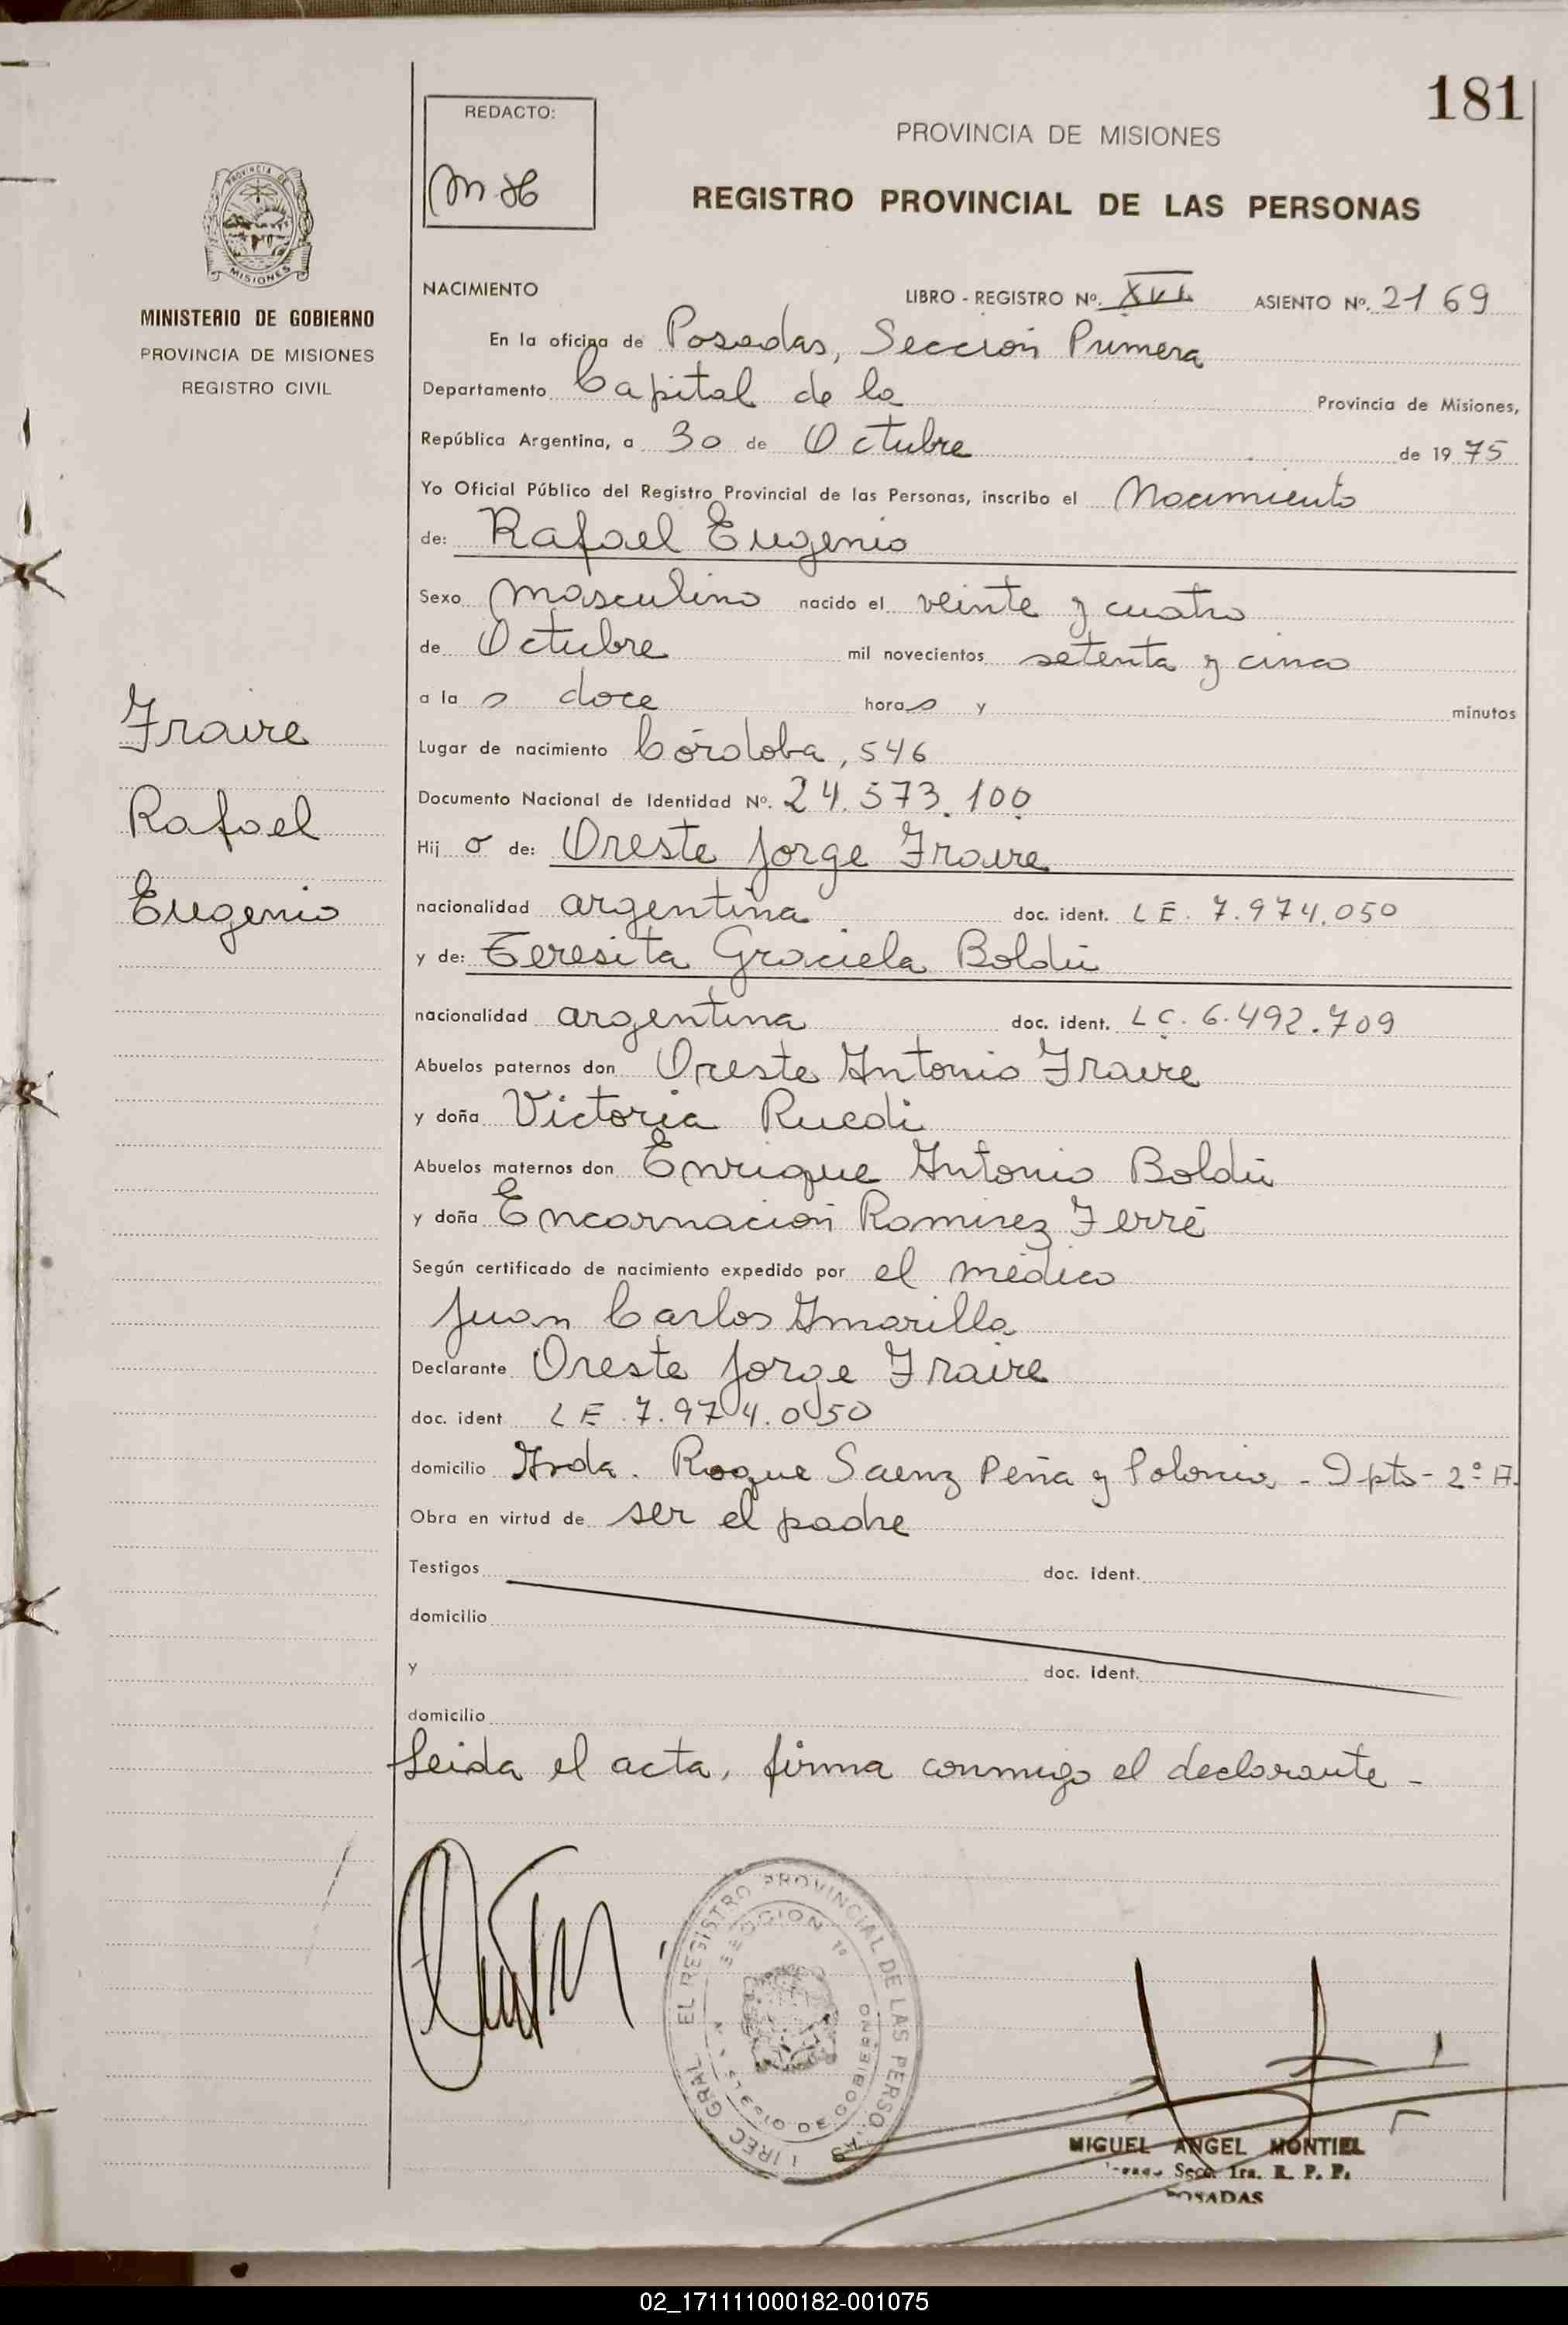 181
REDACTO:
PROVINCIA DE MISIONES
REGISTRO PROVINCIAL DE LAS PERSONAS
PROVINCIA DE
MISIONES
MINISTERIO DE GOBIERNO
PROVINCIA DE MISIONES
REGISTRO CIVIL
NACIMIENTO LIBRO - REGISTRO Nº. XVI ASIENTO Nº. 2169
En la oficina de Posadas, Sección Primera
Departamento Capital de la Provincia de Misiones,
República Argentina, a 30 de Octubre de 1975
Yo Oficial Público del Registro Provincial de las Personas, inscribo el Nacimiento
de: Rafael Eugenio
Sexo masculino nacido el veinte y cuatro
de Octubre mil novecientos setenta y cinco
a la s doce horas y minutos
Fraire
Rafael
Eugenio
Lugar de nacimiento Córdoba, 546
Documento Nacional de Identidad Nº. 24.573.100
Hij o de: Oreste Jorge Fraire
nacionalidad argentina doc. ident. LE. 7.974.050
y de: Teresita Graciela Boldú
nacionalidad argentina doc. ident. LC. 6.492.709
Abuelos paternos don Oreste Antonio Fraire
y doña Victoria Ruedi
Abuelos maternos don Enrique Antonio Boldú
y doña Encarnación Ramirez Ferré
Según certificado de nacimiento expedido por el médico
Juan Carlos Amarilla
Declarante Oreste Jorge Fraire
doc. ident LE. 7.974.050
domicilio Avda. Roque Saenz Peña y Polonia - Dpto - 2º A.
Obra en virtud de ser el padre
Testigos doc. ident.
domicilio
y doc. ident.
domicilio
Leida el acta, firma conmigo el declarante -
EL REGISTRO PROVINCIAL DE LAS PERSO
SECCION 1ª
DE GOBIERNO
GRAL
MIGUEL ANGEL MONTIEL
Secc. 1ra. R. P. P.
POSADAS
02_171111000182-001075